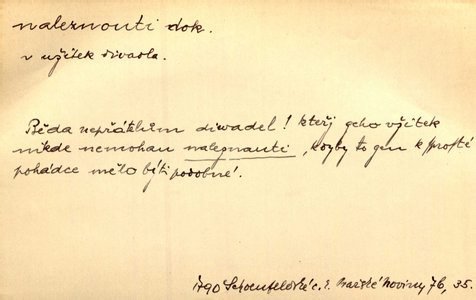 naleznouti dok.
v užitek divadla.
Běda nepřátelům diwadel! kteřj geho vžitek
nikde nemohau naleznauti, kdyby to gen k sprosté
pohádce mělo býti podobné.
1790 Schoenfeldské c. k. Pražské Noviny 76, 35.